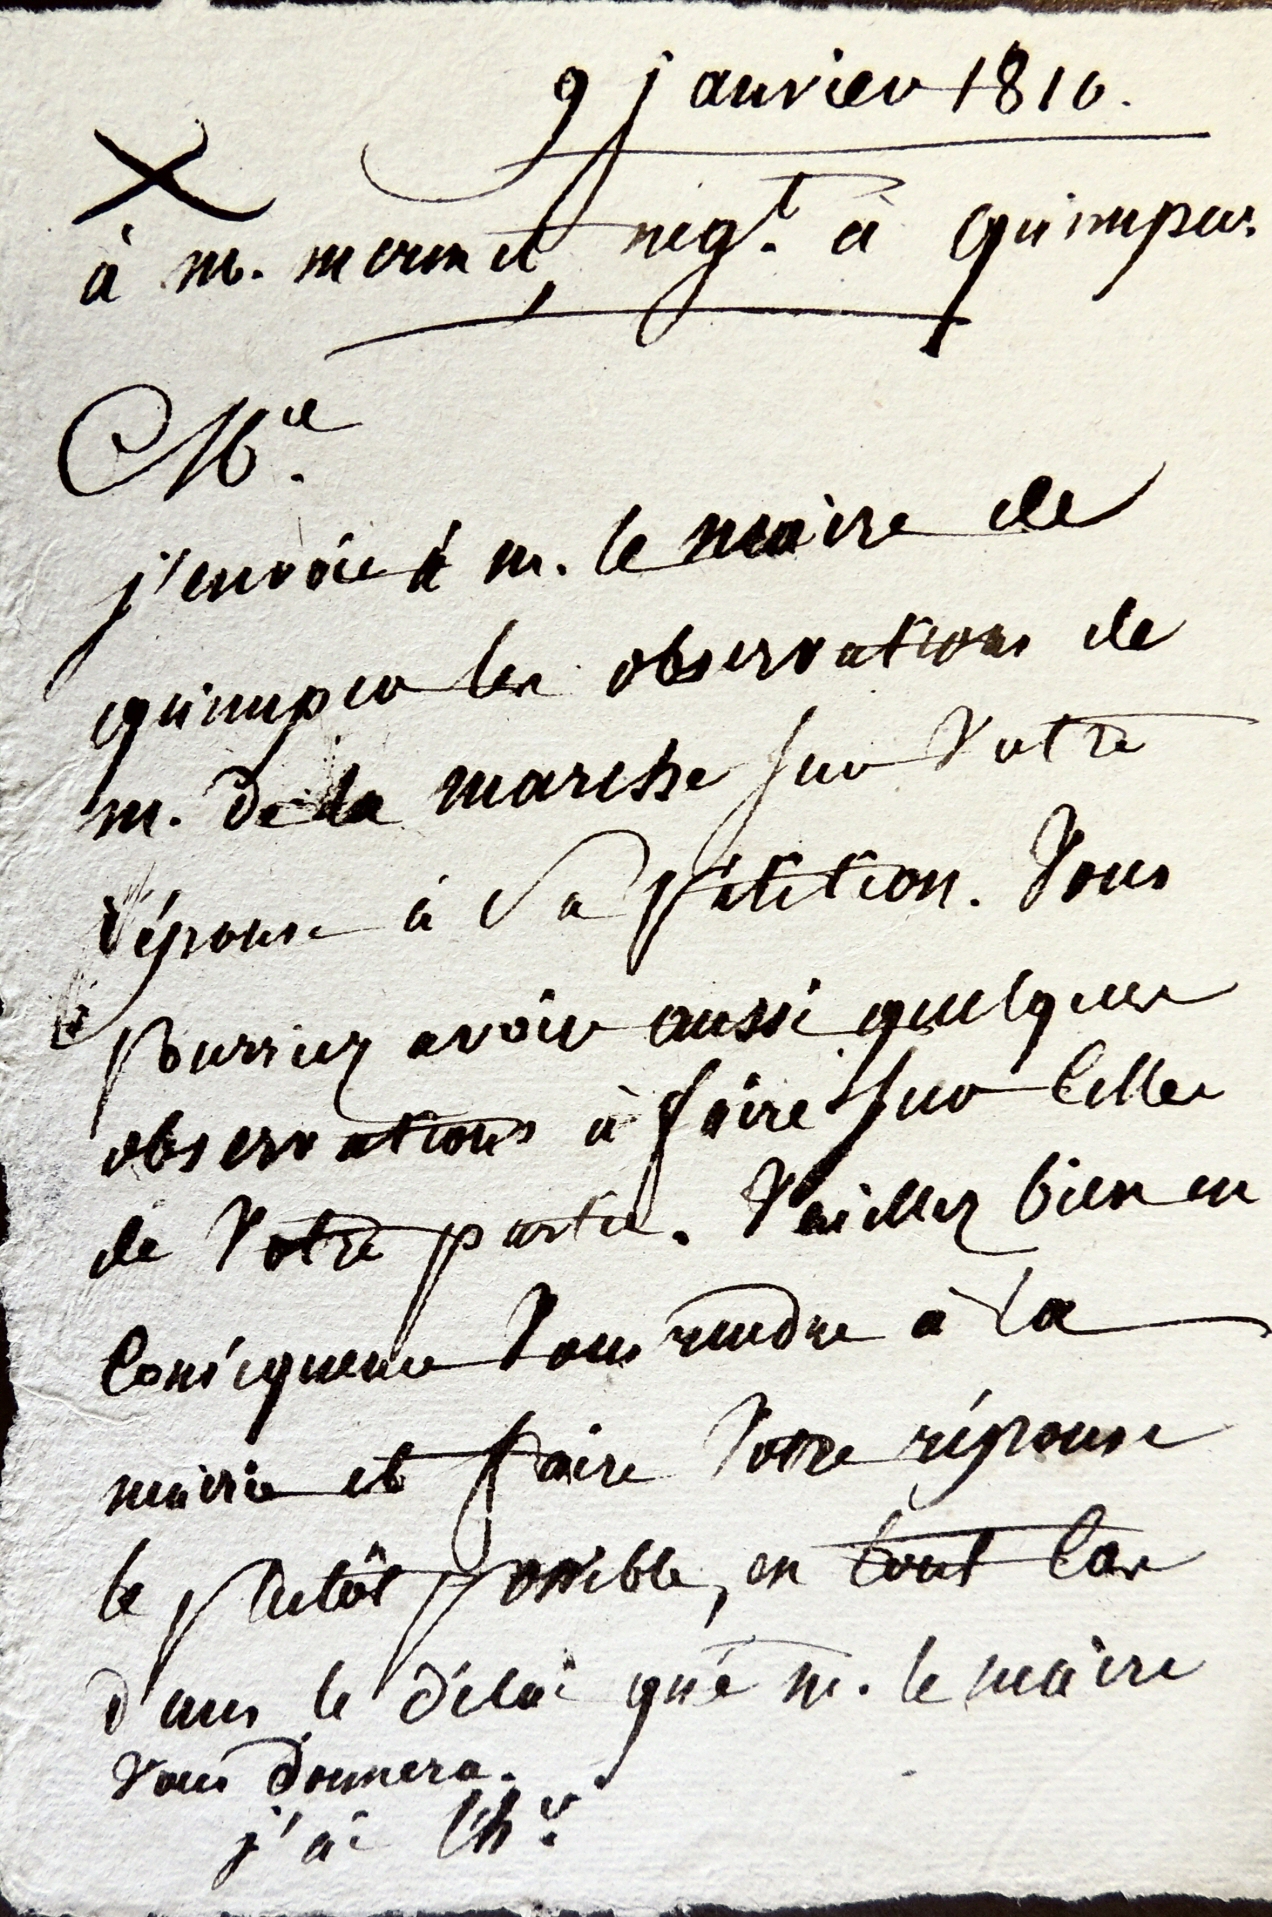 9 janvier 1810.
à m. mermet, nég.t à quimper.
M.r
j'envoie à m. le maire de
quimper les observations de
m. de la marche sur votre
réponse à sa pétition. Vous
pourriez avoir aussi quelques
observations à faire sur celles
de votre partie. Veuillez bien en
conséquence vous rendre à la
mairie et faire votre réponse
le plutôt possible, en tout cas
dans le délai que m. le maire
vous donnera.
j'ai l'h.r